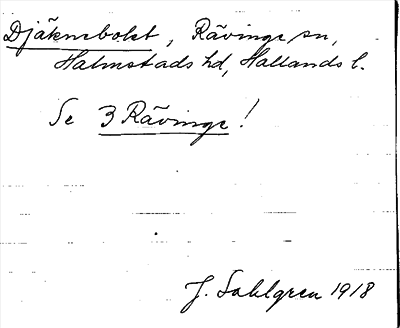 Djäknebolet, Rävinge sn,
Halmstads hd, Hallands l.
Se 3 Rävinge!
J. Sahlgren 1918